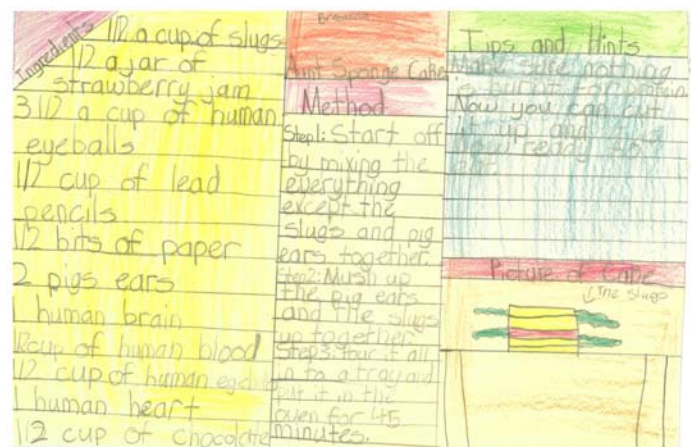 Ingredients
1/2 a cup of slugs
1/2 a jar of
strawberry jam
3 1/2 a cup of human
eyeballs
1/2 cup of lead
pencils
1/2 bits of paper
2 pigs ears
1 human brain
1/2 cup of human blood
1/2 cup of human
1 human heart
1/2 cup of chocolate
Aunt Sponge Cake
Method
Step1: Start off
by mixing the
everything
except the
slugs and pig
ears together.
Step2: Mush up
the pig ears
and the slugs
up together
Step3: Pour it all
in to a tray and
put it in the
oven for 45
minutes.
Tips and Hints
Make sure nothing
is burnt for protein
Now you can cut
it up and
now ready to
Picture of Cake
The slugs